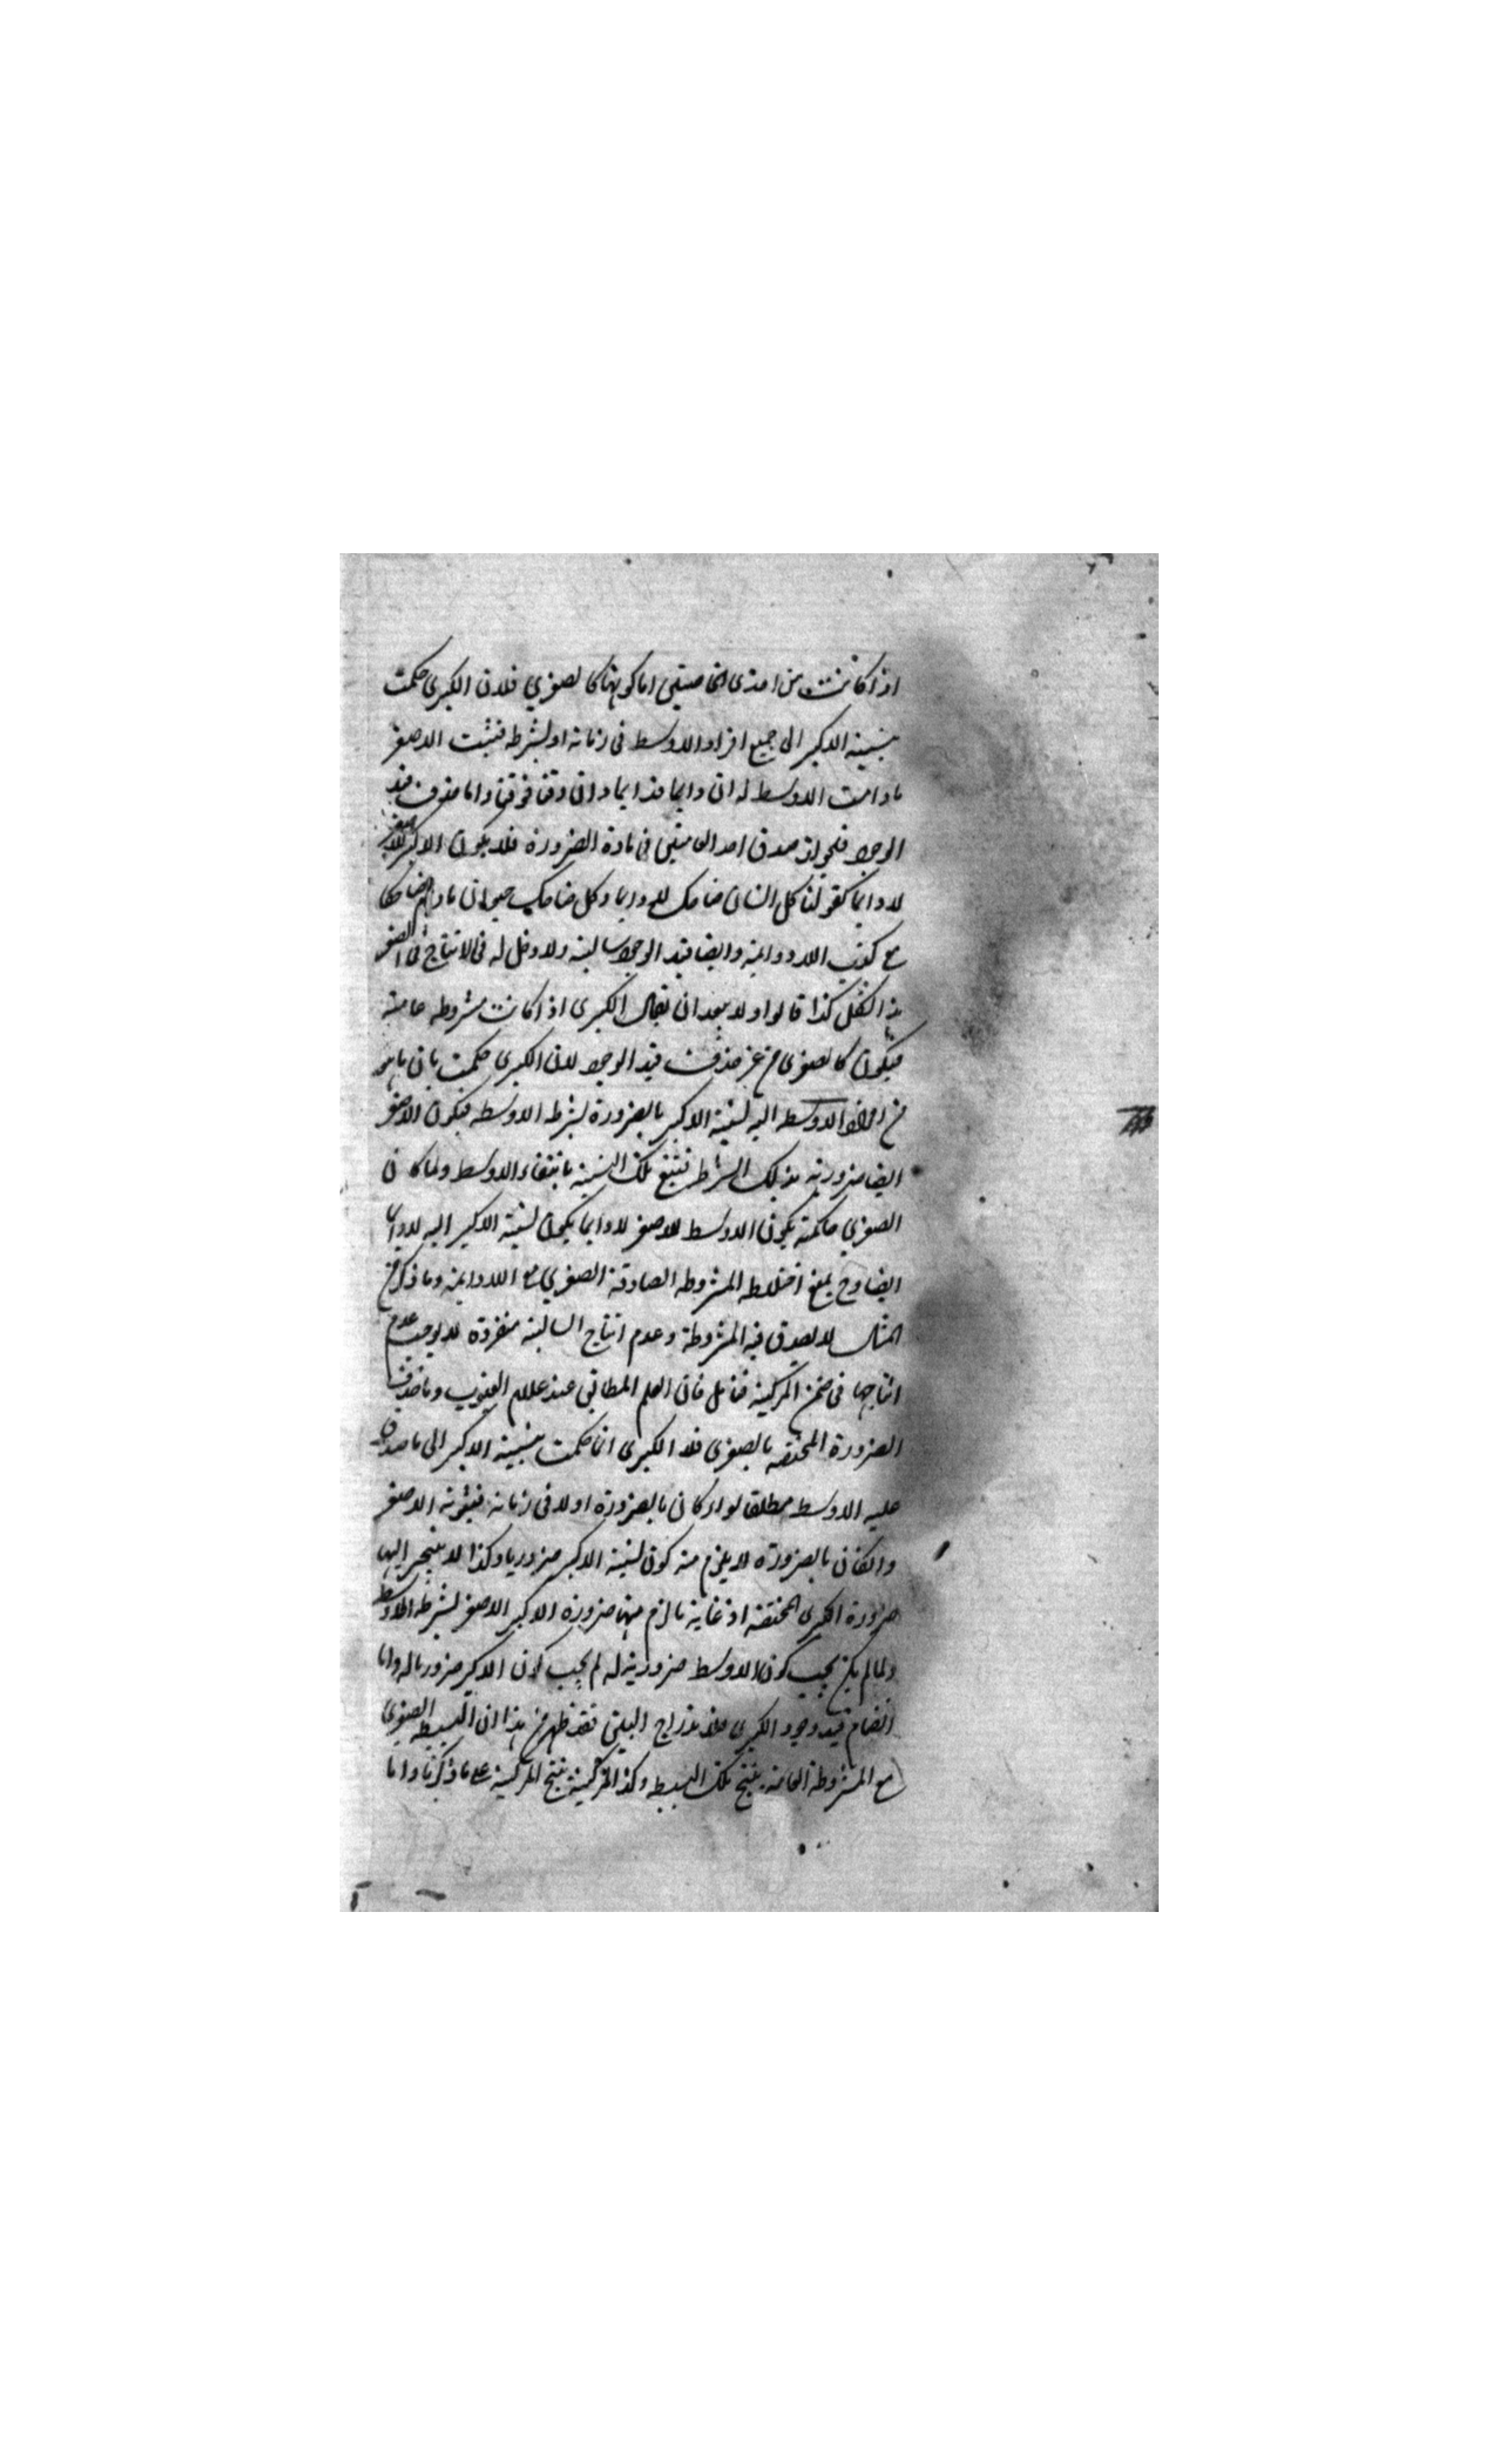 اذا كانت من احدى الخاصيتين اما كونها كالصغرى فلان الكبرى حكمت
بنسبة الاكبر الى جميع افراد الاوسط فى زمانه او بشرطه فيثبت للاصغر
ما دامت الاوسط له ان دايما فدايما وان وقتا فوقتا واما حذف قيد
الوجود فلجواز صدق احد العامتين فى مادة الضرورة فلا يكون الاكبر للاصغر
لا دايما كقولنا كل انسان ضاحك لا دايما وكل ضاحك حيوان ما دام ضاحكا
مع كذب اللادوامة وايضا قيد الوجود سالبة ولا دخل له فى الانتاج فى الصغرى
هذا الشكل كذا قالوا ولا يبعد ان يقال الكبرى اذا كانت مشروطه خاصة
فيكون كالصغرى من غير حذف قيد الوجود لان الكبرى حكمت بان ما هو
من افراد الاوسط اليه نسبة الاكبر بالضرورة بشرط الاوسط فيكون الاصغر
ايضا ضرورية بذلك الشرط فينتفى تلك النسبة بانتفاء الاوسط ولما كان
الصغرى حاكمة بكون الاوسط للاصغر لا دايما يكون نسبة الاكبر اليه لا دايما
ايضا وح يمنع اختلاط المشروطه الصادقة الصغرى مع اللادايمة وما ذكر من
المثال لا يصدق فيه المشروطة وعدم انتاج السالبة منفردة لا يوجب عدم
انتاجها فى ضمن المركبة فتامل فان العلم المطابق عند علام الغيوب وما حذف
الضرورة المختصة بالصغرى فلان الكبرى انما حكمت بنسبة الاكبر الى ما صدق
عليه الاوسط مطلقا سواء كان بالضرورة او لا فى زمانه فثبوته للاصغر
وان كان بالضرورة لا يلزم منه كون نسبة الاكبر ضروريا وكذا لا ينجر اليها
ضرورة الكبرى المختصة اذ غاية ما لزم منها ضرورة الاكبر للاصغر بشرط الاوسط
ولما لم يكن يجب كون الاوسط ضرورية له لم يجب كون الاكبر ضروريا له واما
انضمام قيد وجود الكبرى فلاندراج البين فقد ظهر من هذا ان البسيطه الصغرى
مع المشروطة العامة ينتج تلك البسيطه وكذا المركبة ينتج المركبة على ما ذكرنا واما